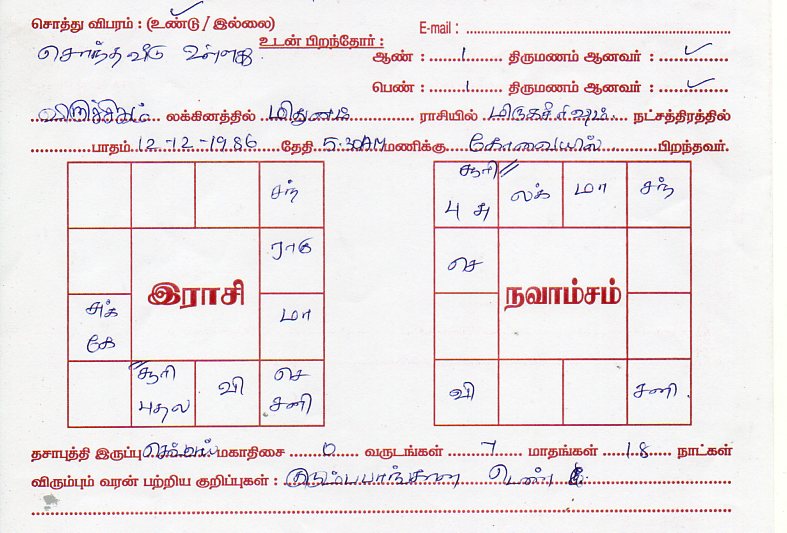 சொத்து விபரம் : (உண்டு / இல்லை) E-mail :
சொந்த வீடு உள்ளது உடன் பிறந்தோர் : ஆண் : 1 திருமணம் ஆனவர் : ✓
பெண் : 1 திருமணம் ஆனவர் : ✓
விருச்சிகம் லக்கினத்தில் மிதுனம் ராசியில் மிருகசீரிஷம் நட்சத்திரத்தில்
பாதம் 12-12-1986 தேதி 5.30AM மணிக்கு கோவையில் பிறந்தவர்.
சந்
ராகு
இராசி
சுக்
கே
மா
சூரி
புதல
வி
செ
சனி
சூரி
பு சு
லக்
மா
சந்
செ
நவாம்சம்
வி
சனி
தசாபுத்தி இருப்பு செவ்வாய் மகாதிசை 0 வருடங்கள் 7 மாதங்கள் 18 நாட்கள்
விரும்பும் வரன் பற்றிய குறிப்புகள் : குடும்பபாங்கான பெண்